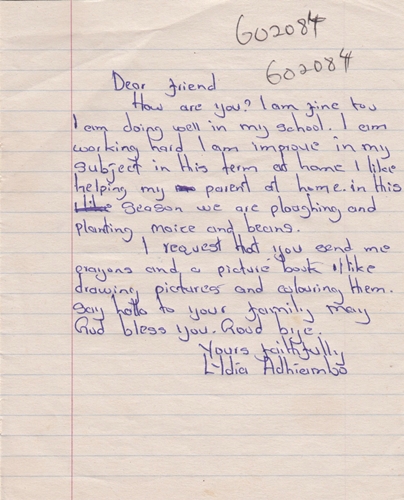 602084
602084
Dear friend
How are you? I am fine too
I am doing well in my school. I am
working hard I am improve in my
subject in this term at home I like
helping my parent at home. in this
like season we are ploughing and
planting maice and beans.
I request that you send me
crayons and a picture book I like
drawing pictures and colouring them.
Say hallo to your family may
God bless you. Good bye.
Yours faithfully
Lydia Adhiambo